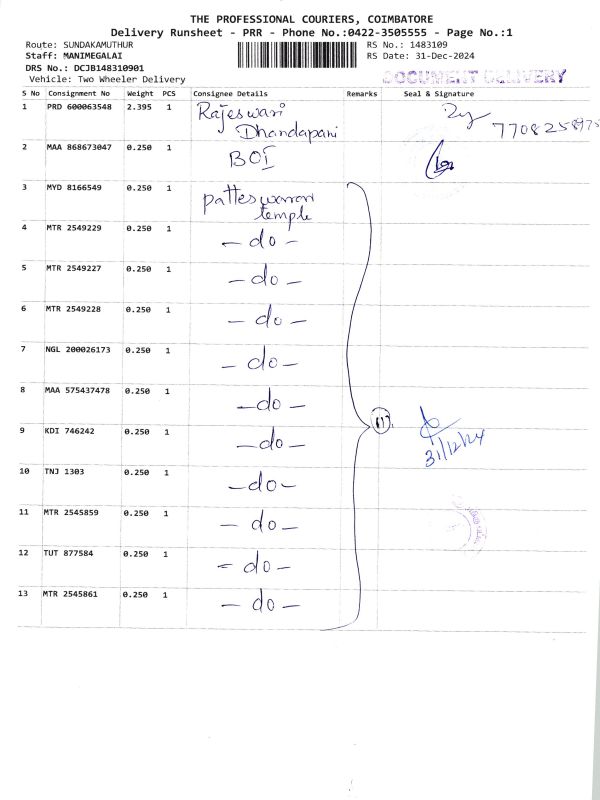 THE PROFESSIONAL COURIERS, COIMBATORE
Delivery Runsheet - PRR - Phone No.:0422-3505555 - Page No.:1
Route: SUNDAKAMUTHUR RS No.: 1483109
Staff: MANIMEGALAI RS Date: 31-Dec-2024
DRS No.: DCJB148310901
Vehicle: Two Wheeler Delivery DOCUMENT DELIVERY
S No Consignment No Weight PCS Consignee Details Remarks Seal & Signature
1 PRD 600063548 2.395 1 Rajeswari
Dhandapani
2 MAA 868673047 0.250 1 BOI
3 MYD 8166549 0.250 1 patteswarar
temple
4 MTR 2549229 0.250 1 - do -
5 MTR 2549227 0.250 1 - do -
6 MTR 2549228 0.250 1 - do -
7 NGL 200026173 0.250 1 - do -
8 MAA 575437478 0.250 1 - do -
9 KDI 746242 0.250 1 - do -
(11)
31/12/24
10 TNJ 1303 0.250 1 - do -
11 MTR 2545859 0.250 1 - do -
12 TUT 877584 0.250 1 - do -
13 MTR 2545861 0.250 1 - do -